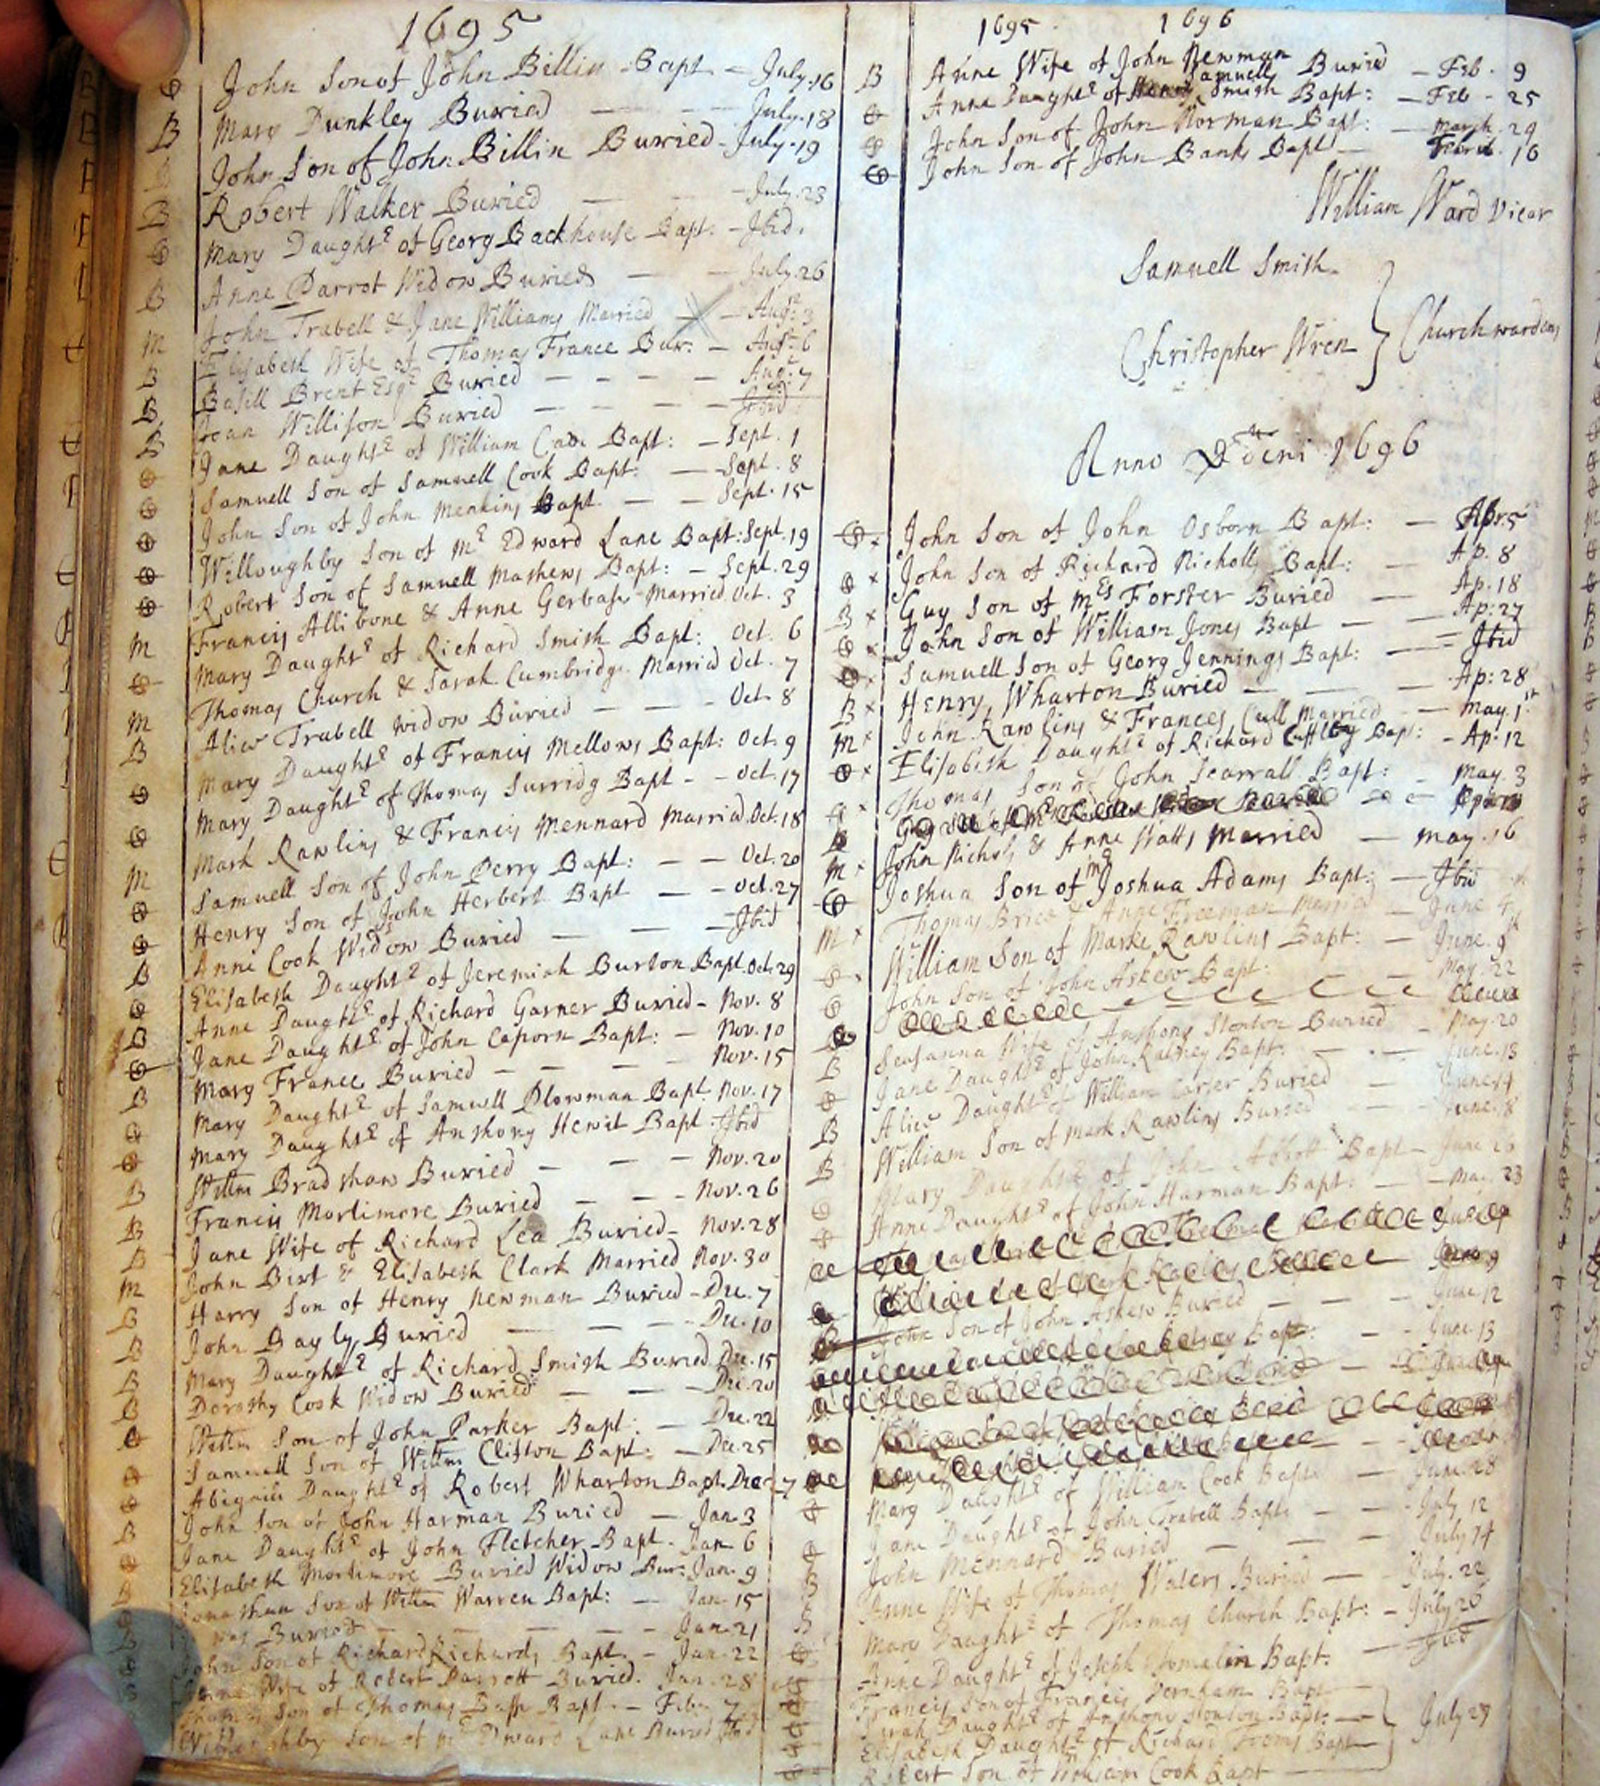 1695
John Son of John Billin Bapt July 16
Mary Dunkley Buried July 18
B John Son of John Billin Buried July 19
B Robert Walker Buried July 23
Mary Daughtr of Georg Backhouse Bapt: Ibid.
B Anne Parrot Widow Buried July 26
M John Trabell & Jane Williams Married Augt 3
B Elisabeth Wife of Thomas France Bur: Augt 6
B Basill Brent Esqr Buried Augt 7
B Joan Willison Buried Ibid
Jane Daughtr of William Bapt: Sept. 1
Samuell Son of Samuell Cook Bapt: Sept. 8
John Son of John Meakins Bapt Sept. 15
Willoughby Son of Mr Edward Lane Bapt: Sept. 19
Robert Son of Samuell Mathews Bapt: Sept. 29
M Francis Allibone & Anne Married Oct. 3
Mary Daughtr of Richard Smith Bapt: Oct. 6
M Thomas Church & Sarah Cumbridg Married Oct. 7
B Alice Trabell Widow Buried Oct. 8
Mary Daughtr of Francis Mellows Bapt: Oct. 9
Mary Daughtr of Thomas Surridg Bapt Oct. 17
M Mark Rawlins & Francis Mennard Married Oct. 18
Samuell Son of John Perry Bapt: Oct. 20
Henry Son of John Herbert Bapt Oct. 27
B Anne Cook Widow Buried Ibid
Elisabeth Daughtr of Jeremiah Burton Bapt. Oct. 29
B Anne Daughtr of Richard Garner Buried Nov. 8
Jane Daughtr of John Caporn Bapt: Nov. 10
B Mary France Buried Nov. 15
Mary Daughtr of Samuell Plowman Bapt. Nov. 17
Mary Daughtr of Anthony Hewit Bapt Ibid
B Willm Bradshaw Buried Nov. 20
B Francis Mortimore Buried Nov. 26
B Jane Wife of Richard Lea Buried Nov. 28
M John Birt & Elisabeth Clark Married Nov. 30
B Harry Son of Henry Newman Buried Dec. 7
B John Bayly Buried Dec. 10
B Mary Daughtr of Richard Smith Buried Dec. 15
B Dorothy Cook Widow Buried Dec. 20
Willm Son of John Parker Bapt: Dec. 22
Samuell Son of Willm Clifton Bapt: Dec. 25
Abigaill Daughtr of Robert Wharton Bapt. Dec 27
B John Son of John Harman Buried Jan. 3
Jane Daughtr of John Fletcher Bapt Jan. 6
B Elisabeth Mortimore Buried Widow Bur: Jan. 9
Jonathan Son of Willm Warren Bapt: Jan. 15
was Buried Jan. 21
John Son of Richard Richards Bapt. Jan. 22
Wife of Robert Parrott Buried. Jan. 28
Thomas Son of Thomas Bapt. Feb. 7
Willoughby Son of Mr Edward Lane Buried Ibid
1695 1696
B Anne Wife of John Newman Buried Feb. 9
Anne Daughtr of Samuell Smith Bapt: Feb 25
John Son of John Norman Bapt: March 29
John Son of John Banks Bapt 16
William Ward Vicar
Samuell Smith
Christopher Wren
Churchwardens
Anno Domini 1696
John Son of John Osborn Bapt: Apr. 5
John Son of Richard Nicholls Bapt: Ap. 8
B Guy Son of Mrs Forster Buried Ap. 18
John Son of William Jones Bapt Ap: 27
Samuell Son of Georg Jennings Bapt: Ibid
B Henry Wharton Buried Ap: 28
M John Rawlins & Frances Cull Married May. 1st
Elisabeth Daughtr of Richard Bapt: Ap. 12
Thomas Son of John Scarrall Bapt: May. 3
M John Nichols & Anne Watts Married May. 16
Joshua Son of Mr Joshua Adams Bapt: Ibid
M Thomas Brice & Anne Freeman Married June 4
William Son of Marke Rawlins Bapt: June. 9th
John Son of John Askew Bapt: May. 22
B Susanna Wife of Anthony Stonton Buried May. 20
Jane Daughtr of John Bapt: June. 13
B Alice Daughtr of William Carter Buried June 14
B William Son of Mark Rawlins Buried June. 18
Mary Daughtr of John Abbott Bapt June 26
Anne Daughtr of John Harman Bapt: May. 23
John Son of John Askew Buried June. 12
Bapt: June. 13
Mary Daughtr of William Cook Bapt: June. 28
Jane Daughtr of John Trabell Bapt: July 12
B John Mennard Buried July 14
B Anne Wife of Thomas Waters Buried July. 22
Mary Daughtr of Thomas Church Bapt: July 26
Anne Daughtr of Joseph Bapt: Ibid
Francis Son of Francis Bapt
Sarah Daughtr of Anthony Stonton Bapt:
Elisabeth Daughtr of Richard Bapt July 27
Robert Son of William Cook Bapt